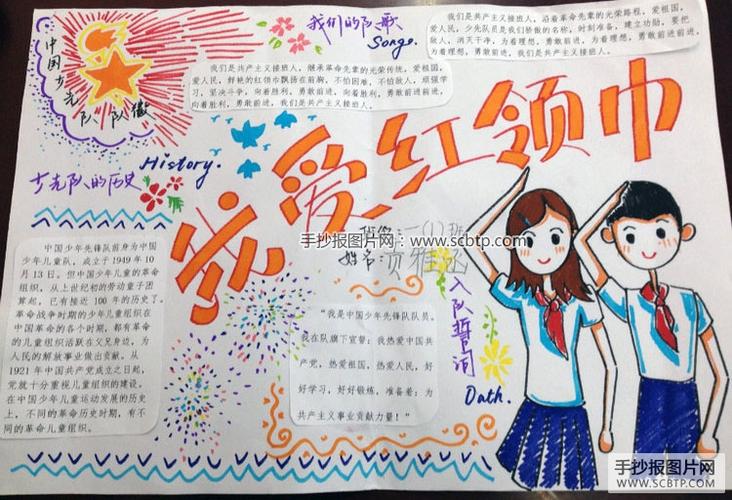 中国少先队队徽
我们的队歌
Songs.
我们是共产主义接班人，沿着革命先辈的光荣路程，爱祖国，
爱人民，少先队员是我们骄傲的名称，时刻准备，建立功勋，要把
敌人，消灭干净，为着理想，勇敢前进，为着理想，勇敢前进前进，
为着理想，勇敢前进，我们是共产主义接班人。
我们是共产主义接班人，继承革命先辈的光荣传统，爱祖国，
爱人民，鲜艳的红领巾飘扬在前胸，不怕困难，不怕敌人，顽强学
习，坚决斗争，向着胜利，勇敢前进，向着胜利，勇敢前进前进，
向着胜利，勇敢前进，我们是共产主义接班人。
History.
少先队的历史
爱红领巾
班级：一(1)班
姓名：贾雅
手抄报图片网：www.scbtp.com
中国少年先锋队前身为中国
少年儿童队，成立于 1949 年 10
月 13 日。但中国少年儿童的革命
组织，从上世纪初的劳动童子团
算起，已有接近 100 年的历史了。
革命战争时期的少年儿童组织在
中国革命的各个时期，都有革命
的儿童组织活跃在父兄身边，为
人民的解放事业做出贡献。从
1921 年中国共产党成立之日起，
党就十分重视儿童组织的建设，
在中国少年儿童运动发展的历史
上，不同的革命历史时期，有不
同的革命儿童组织。
“我是中国少年先锋队队员。
我在队旗下宣誓：我热爱中国共
产党，热爱祖国，热爱人民，好
好学习，好好锻炼，准备着：为
共产主义事业贡献力量！”
入队誓词
Oath.
手抄报图片网
WWW.SCBTP.COM